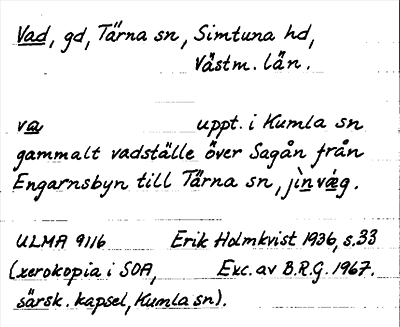 Vad, gd, Tärna sn, Simtuna hd,
Västm. län.
va uppt. i Kumla sn
gammalt vadställe över Sagån från
Engarnsbyn till Tärna sn, jìnvæg.
ULMA 9116 Erik Holmkvist 1936, s.33
(xerokopia i SOA, Exc. av B.R.G. 1967.
särsk. kapsel, Kumla sn).